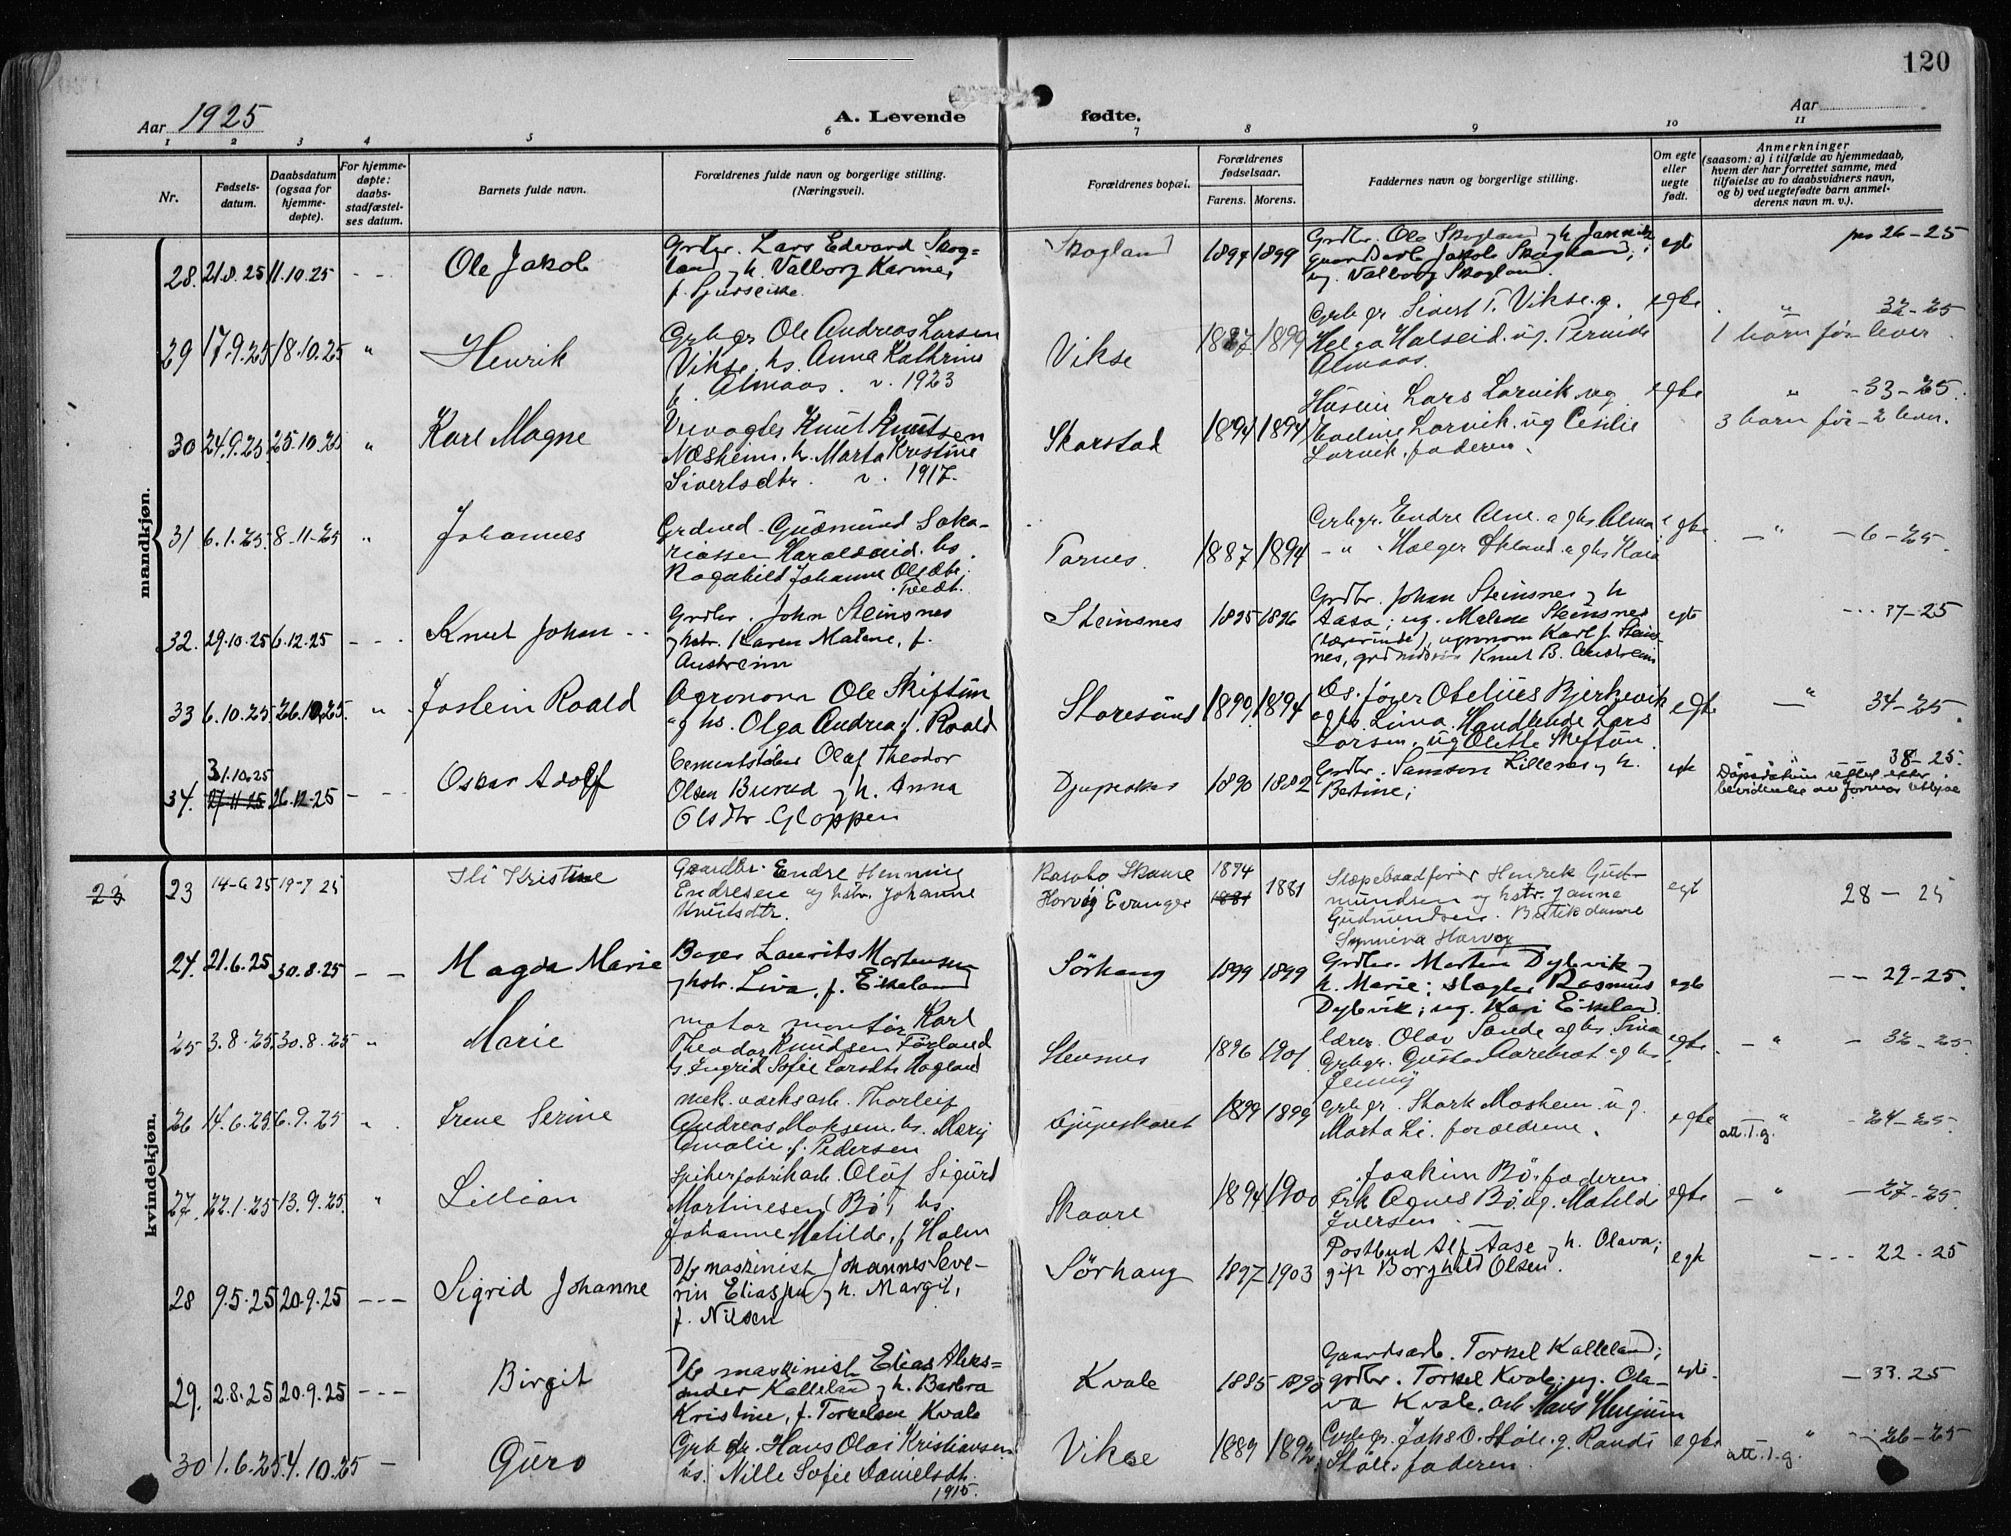 120
Aar 1925
A. Levende fødte.
Aar
1 2 3 4 5 6 7 8 9 10 11
Nr.
Fødsels-
datum.
Daabsdatum
(ogsaa for
hjemme-
døpte).
For hjemme-
døpte:
daabs-
stadfæstel-
ses datum.
Barnets fulde navn.
Forældrenes fulde navn og borgerlige stilling.
(Næringsvei).
Forældrenes bopæl.
Forældrenes
fødselsaar.
Farens. Morens.
Faddernes navn og borgerlige stilling.
Om egte
eller
uegte
født.
Anmerkninger
(saasom: a) i tilfælde av hjemmedaab,
hvem der har forrettet samme, med
tilføielse av to daabsvidners navn,
og b) ved uegtefødte barn anmel-
derens navn m. v.).
mandkjøn.
28. 21.8.25 11.10.25 - - Ole Jakob
Grdbr. Lars Edvard Skog-
land og h. Valborg Karine,
Skogland 1894 1899
Grdbr. Ole Skogland og h.
Jakob Skogland;
ug. Valborg Skogland.
egte 26-25
29 17.9.25 18.10.25 " Henrik
Grbgr Ole Andreas Larsen
Vikse, hs. Anna Kathrine
f. Almaas. v. 1923
Vikse 1887 1899
Grbgr Sivert T. Vikse. g.
Helga Halseid. ug. Pernide
Almaas.
egte " 32-25
1 barn før - lever.
30 24.9.25 25.10.25 " Karl Magne
Knut Knutsen
Næsheim. h. Marta Kristine
Sivertsdtr. v. 1917.
Skarstad 1894 1894
Lars Larvik
Larvik. ug Cecilie
Larvik. faderen.
egte " -33-25.
3 barn før - 2 lever.
31 6.1.25. 8-11-25 " Johannes
Grdmed. Gudmund Saka-
riassen Haraldseid. hs.
Ragnhild Johanne Olsdtr.
Tvedt.
Tornes. 1887 1894
Grbgr. Endre Alne. og hs Alma
- " - Holger Økland og hs Kaia
egte - " - 6-25.
32. 29.10.25 6.12.25 - - - Knut Johan
Grdbr. John Steinsnes
og hstr. Karen Malene, f.
Austreim
Steinsnes 1895 1896
Grdbr. Johan Steinsnes og h
Aasa; ug. Malene Steinsnes
(lærerinde), agronom Karl J. Steins-
nes, Knut B. Austreim
egte 37-25
33 6.10.25 26.10.25. " Jostein Roald
Agronom Ole Skiftun
og hs. Olga Andrea f. Roald
Storesund 1890 1894
Otelius Bjerkevik
og hs Lina. Handlende Lars
Larsen. ug Olette Skiftun.
egte - " 34-25.
34. 31.10.25 27.11.25 26.12.25 - - Oskar Adolf
Cementstøber Olaf Theodor
Olsen Buvud og h. Anna
Olsdtr Gloppen
Djupeskar 1890 1882
Grdbr. Samson Lillenes og h.
Bertine;
egte 38-25.
kvindekjøn.
23 23 14-6 25 19-7 25 Ili Kristine
Gaardbr. Endre Henning
Endresen og hstr. Johanne
Knutsdtr.
Skaare
Horvig Evanger
1874 1881 1881
Slæpebaadfører Henrik Gud-
mundsen og hstr. Janna
Gudmundsen. Butikdame
Synnøva Horvog
egt 28 - 25
24. 21.6.25 30.8.25 - - Magda Marie
Bager Laurits Mortensen
og hstr. Liva, f. Eikeland
Sörhaug 1899 1899
Grdbr. Morten Dybvik og
h. Marie; slagter Rasmus
Dybvik; ug. Kari Eikeland.
egte -- 29-25.
25 3.8.25. 30.8.25 " Marie
motor montør Karl
Theodor Knudsen Førland
hs Ingrid Sofie Larsdtr Hagland
Stensnes 1896 1901
lærer Olav Sande og hs Lina
Grbgr. Gustav Aarebrot og hs
Jenny
egte - " - 32-25.
26 14.6.25 6.9.25 " Irene Serine
mek. værksarb. Thorleif
Andreas Moksem hs. Mary
Amalie f. Pedersen
Djupeskaret 1899 1899
Grbgr. Stark Moshem. ug.
Marta Li. forældrene.
egte att. T.g. " -24-25.
27. 22.1.25 13.9.25. " Lillian
Spikerfabrikarb. Olaf Sigurd
Martinesen Bø, hs.
Johanne Matilde, f Holm
Skaare 1894 1900
Joakim Bø. faderen
Frk Agnes Bø. ug. Matilde
Iversen
egte - " -27-25.
28 9.5.25 20.9.25 - - - Sigrid Johanne
D/s maskinist Johannes Seve-
rin Eliassen og h. Margit,
f. Nilsen
Sörhaug 1897 1903
Postbud Alf Aase og h. Olava;
gift Borghild Olsen.
egte - - - 22-25
29. 2.8.25 20.9.25 - - - Birgit
D/s maskinist Elias Aleks-
ander Kalleland og h. Barbra
Kristine, f. Torkelsen Kvale
Kvale 1885 1895
Gaardsarb. Torkel Kalleland;
grdbr. Torkel Kvale; ug. Ola-
va Kvale, arb.
egte. - 33.25
30 1.6.25. 4.10.25 - Guro
Grbgr. Hans Olai Kristiansen
hs. Nille Sofie Danielsdtr.
1915.
Vikse 1889 1892
Grbgr. Johs O. Støle. g. Randi
Støle. faderen.
egte att. T.g. " -26-25